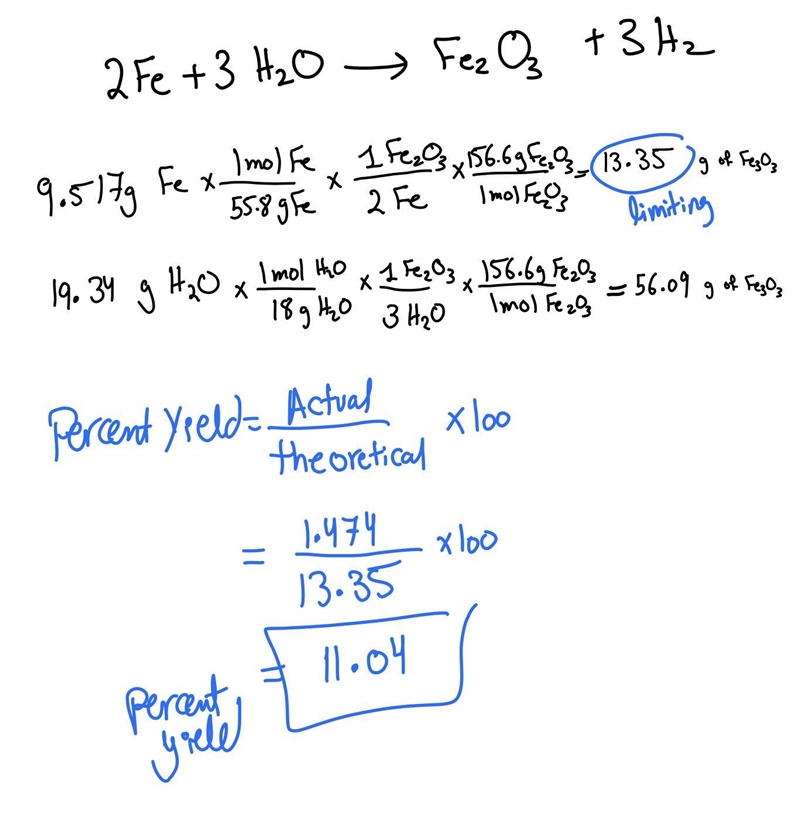 2Fe + 3 H₂O → Fe₂O₃ + 3H₂
9.517g Fe × 1mol Fe / 55.8 g Fe × 1 Fe₂O₃ / 2 Fe × 156.6g Fe₂O₃ / 1mol Fe₂O₃ = 13.35 g of Fe₃O₃
limiting
19.34 g H₂O × 1mol H₂O / 18 g H₂O × 1 Fe₂O₃ / 3 H₂O × 156.6g Fe₂O₃ / 1mol Fe₂O₃ = 56.09 g of Fe₃O₃
Percent Yield = Actual / theoretical × 100
= 1.474 / 13.35 × 100
= 11.04
percent
yield